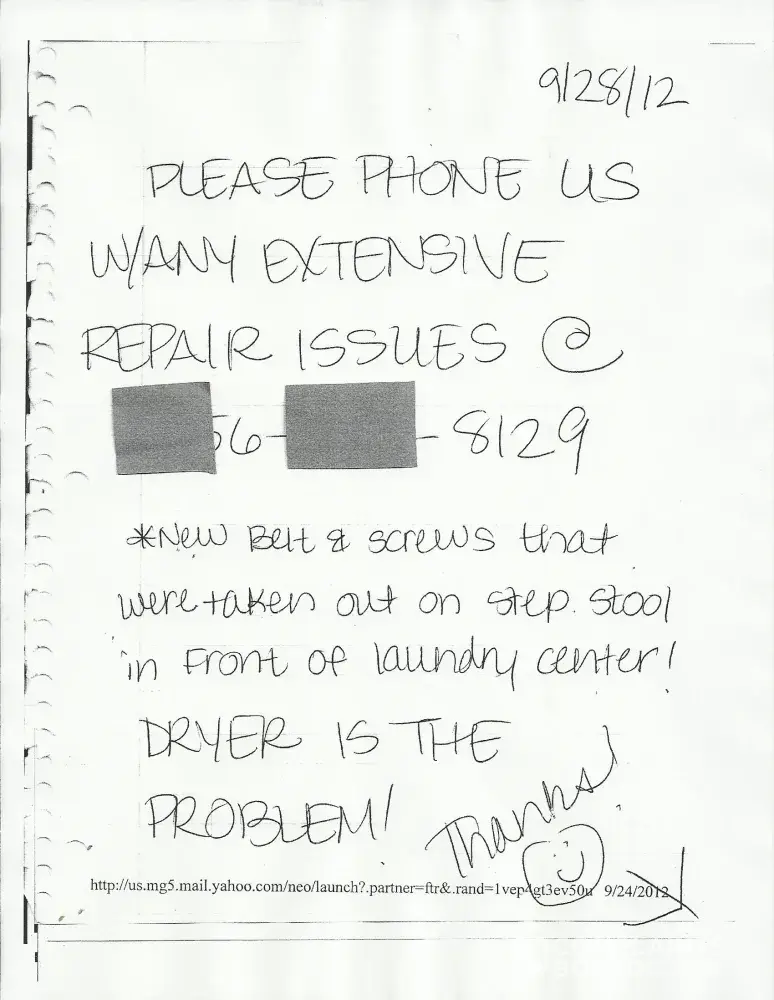 9/28/12
PLEASE PHONE US
W/ANY EXTENSIVE
REPAIR ISSUES @
56- - 8129
*New Belt & screws that
were taken out on step stool
in front of laundry center!
DRYER IS THE
PROBLEM!
Thanks!
http://us.mg5.mail.yahoo.com/neo/launch?.partner=ftr&.rand=1vep4gt3ev50u 9/24/2012